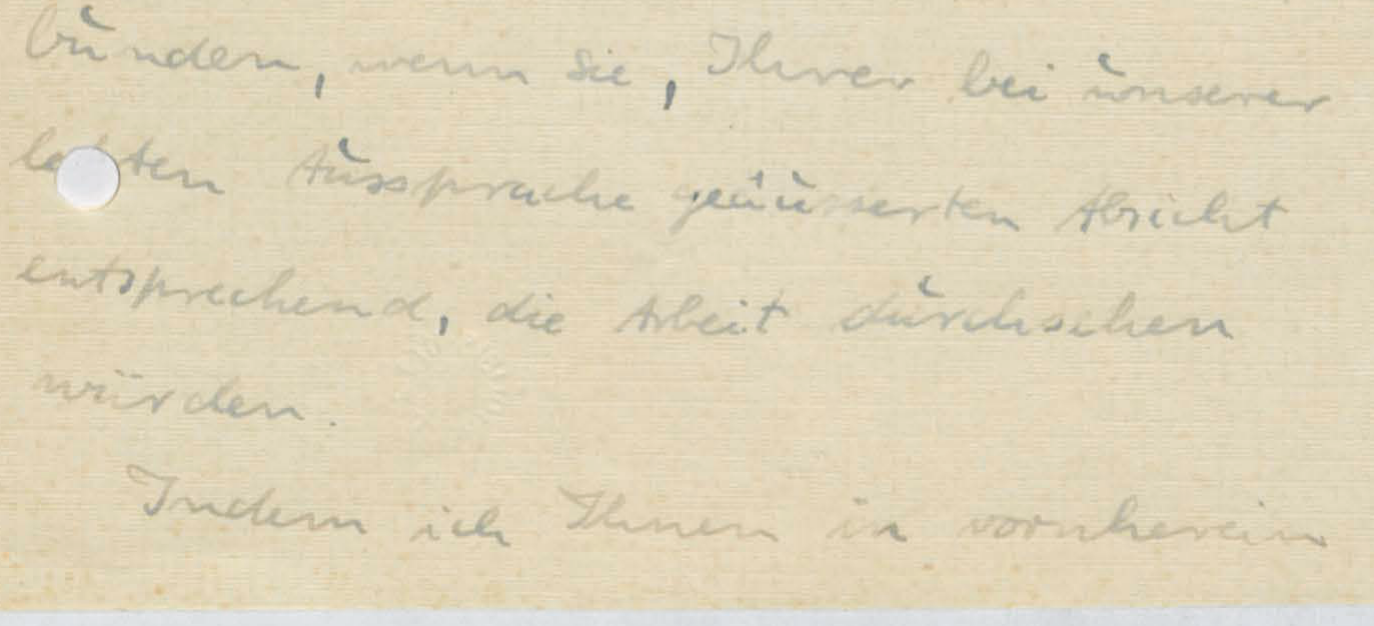 bunden, wenn Sie, Ihrer bei unserer
letzten Aussprache geäusserten Absicht
entsprechend, die Arbeit durchsehen
würden.
Indem ich Ihnen in vornherein